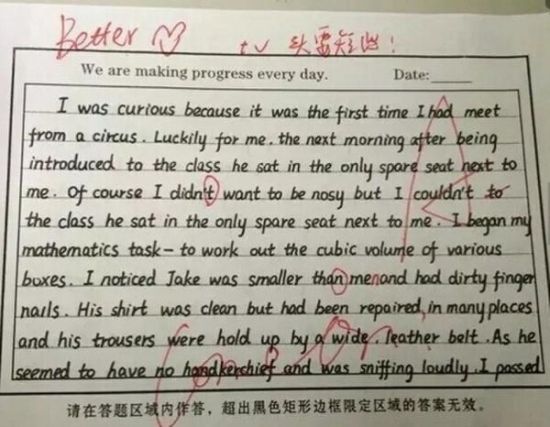 Better t v 头要短些!
We are making progress every day. Date:
I was curious because it was the first time I had meet
from a circus. Luckily for me, the next morning after being
introduced to the class he sat in the only spare seat next to
me. Of course I didn't want to be nosy but I couldn't to
the class he sat in the only spare seat next to me. I began my
mathematics task - to work out the cubic volume of various
boxes. I noticed Jake was smaller than me and had dirty finger
nails. His shirt was clean but had been repaired in many places
and his trousers were hold up by a wide, leather belt. As he
seemed to have no handkerchief and was sniffing loudly. I passed
请在答题区域内作答，超出黑色矩形边框限定区域的答案无效。